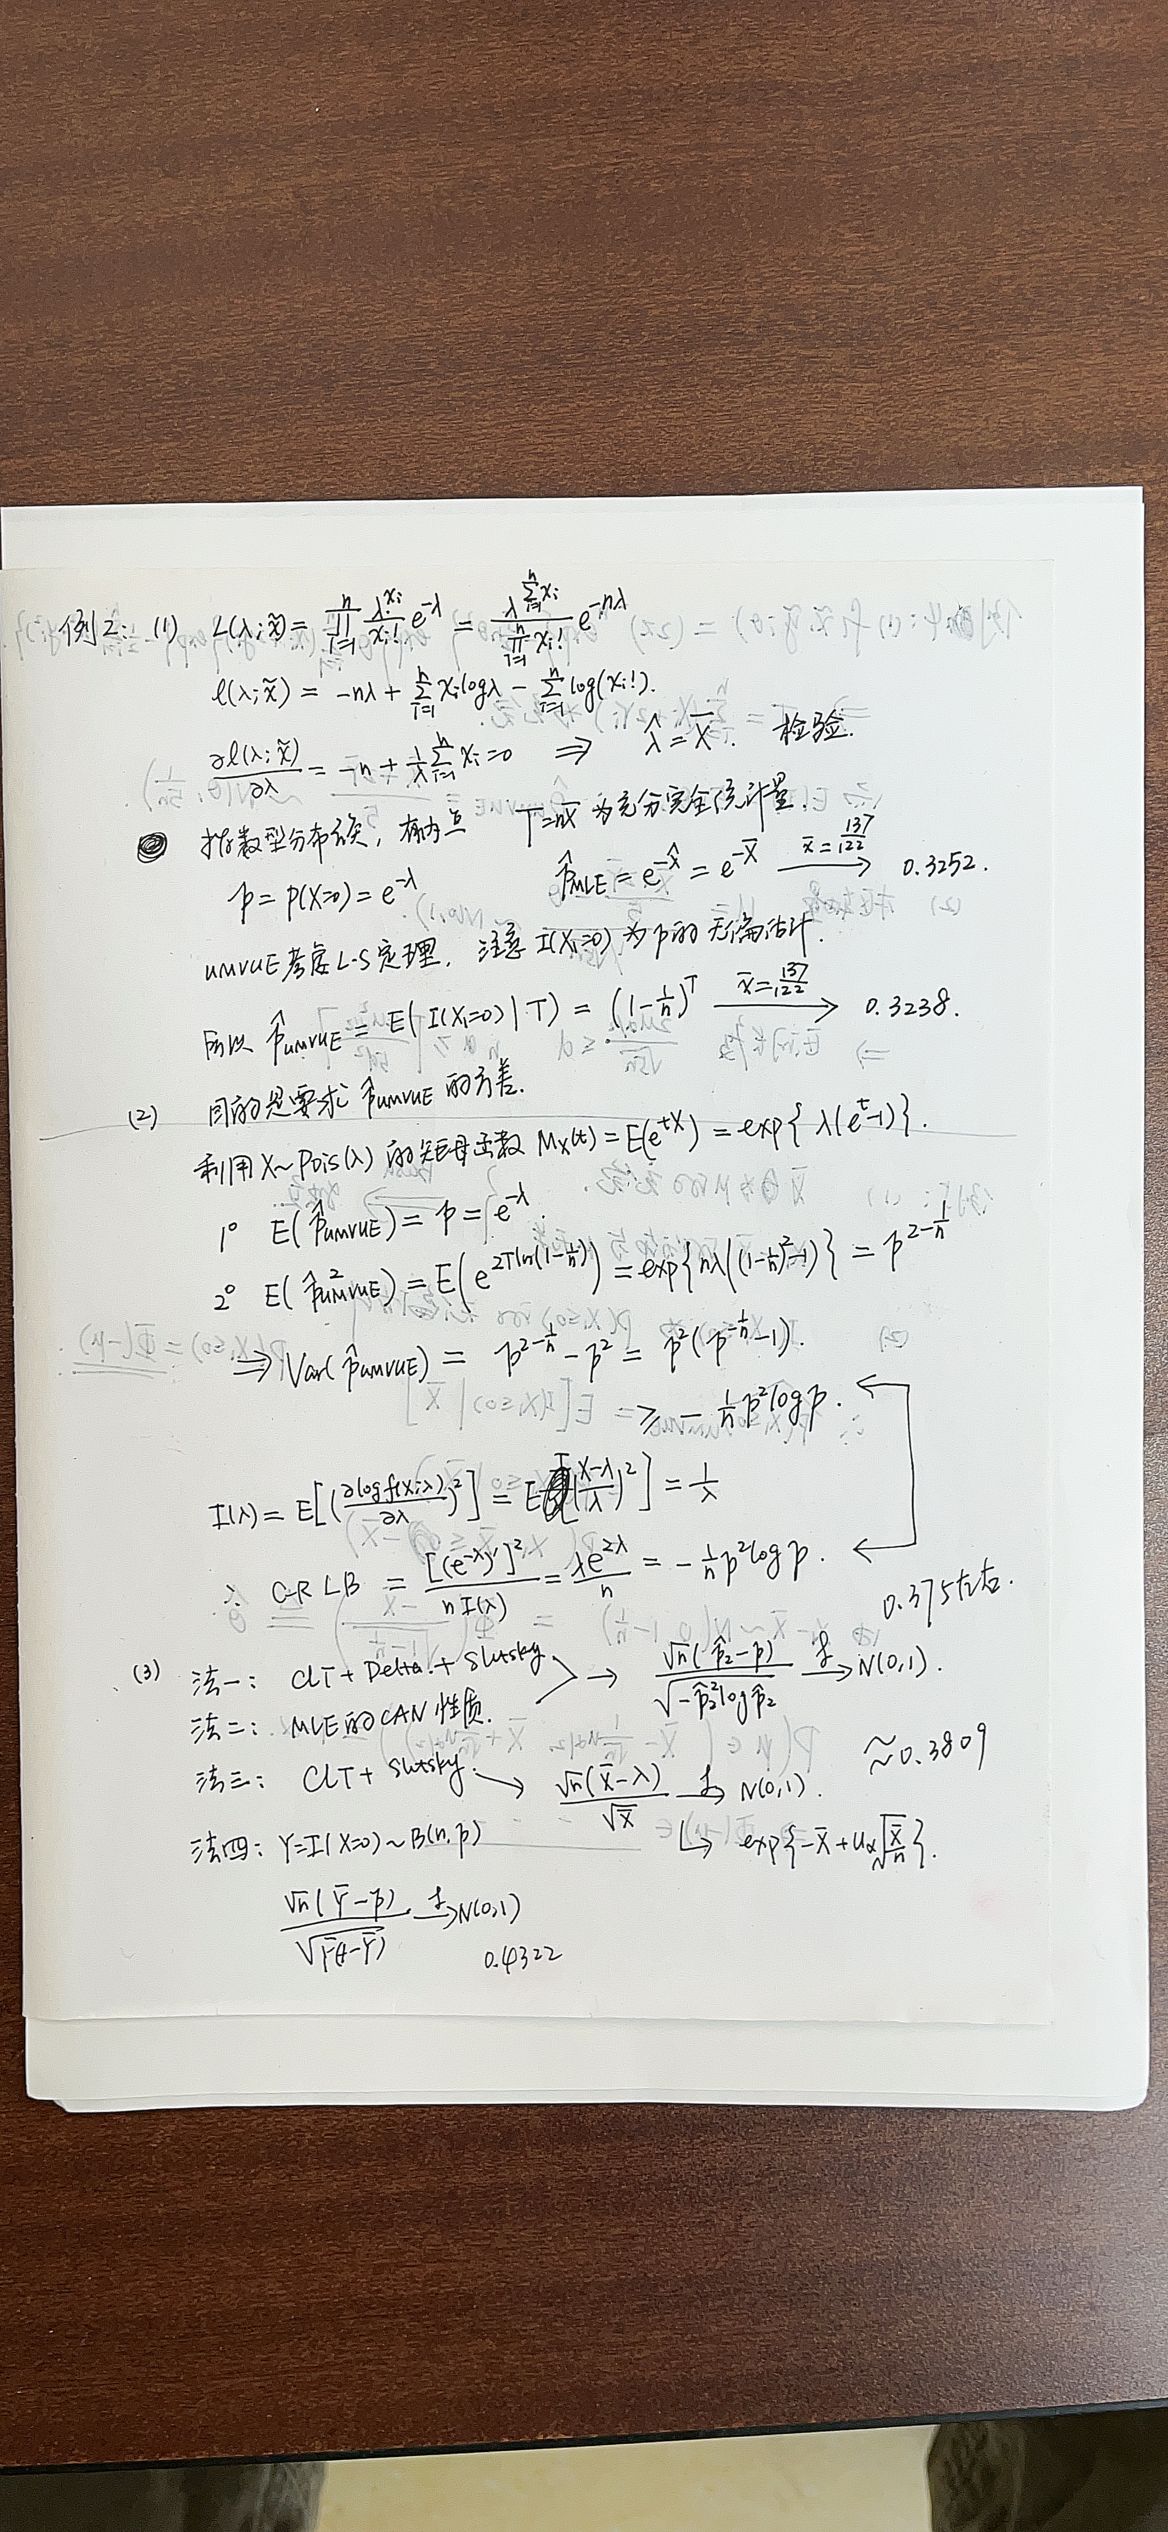 例2: (1) L(λ; x̃) = ∏_{i=1}^{n} λ^{xi}/xi! e^{-λ} = λ^{∑_{i=1}^{n} xi}/∏_{i=1}^{n} xi! e^{-nλ}
ℓ(λ; x̃) = -nλ + ∑_{i=1}^{n} xi logλ - ∑_{i=1}^{n} log(xi!).
∂ℓ(λ; x̃)/∂λ = -n + 1/λ ∑_{i=1}^{n} xi = 0 ⇒ λ̂ = X̄. 检验.
指数型分布族, 有内点 T=nX̄ 为充分完全统计量.
p = P(X=0) = e^{-λ} p̂_{MLE} = e^{-λ̂} = e^{-X̄} —x̄=137/122→ 0.3252.
UMVUE考虑L-S定理, 注意 I(X₁=0) 为p的无偏估计.
所以 p̂_{UMVUE} = E( I(X₁=0) | T) = (1-1/n)^T —x̄=137/122→ 0.3238.
(2) 目的是要求 p̂_{UMVUE} 的方差.
利用 X~Pois(λ) 的矩母函数 M_X(t) = E(e^{tX}) = exp{ λ(e^t-1)}.
1° E(p̂_{UMVUE}) = p = e^{-λ}.
2° E(p̂²_{UMVUE}) = E(e^{2T ln(1-1/n)}) = exp{nλ((1-1/n)²-1)} = p^{2-1/n}
⇒ Var(p̂_{UMVUE}) = p^{2-1/n} - p² = p²(p^{-1/n}-1).
≥ -1/n p² log p.
I(λ) = E[(∂log f(X;λ)/∂λ)²] = E[((X-λ)/λ)²] = 1/λ
∴ C-R LB = [(e^{-λ})']²/nI(λ) = λe^{2λ}/n = -1/n p² log p.
0.375左右.
(3) 法一: CLT + Delta + Slutsky → √n(p̂₂-p)/√(-p̂₂² log p̂₂) →^L N(0,1).
法二: MLE的CAN性质.
≈0.3809
法三: CLT + Slutsky. → √n(X̄-λ)/√X̄ →^L N(0,1).
↳ exp{-X̄+u_α√(X̄/n)}.
法四: Y=I(X=0) ~ B(n, p)
√n(Ȳ-p)/√(Ȳ(1-Ȳ)) →^L N(0,1)
0.4322